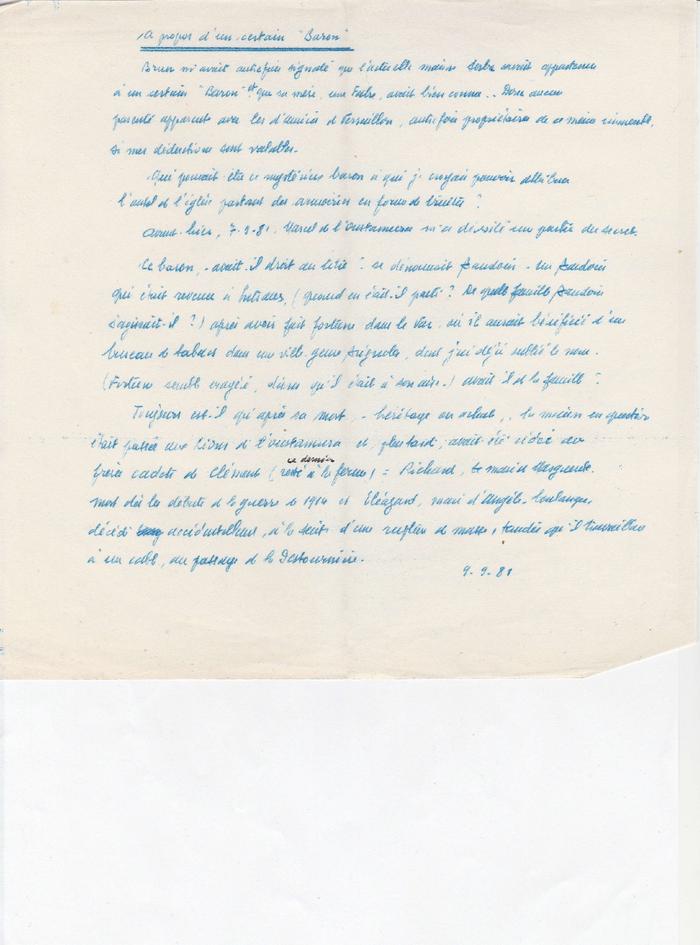 A propos d'un certain "Baron"
m'avait autrefois signalé que l'actuelle maison avait appartenu
à un certain "Baron" et que sa mère, une Fabre, avait bien connu .. Donc aucun
parenté apparent avec les d'Amica d , autrefois propriétaires de ce manoir
si mes déductions sont valables.
Qui pouvait être ce mystérieux baron à qui je croyais pouvoir attribuer
l'autel de l'église portant des armoiries en forme de ?
Avant-hier, 7-9-81. Marcel de l'Oustamura m'a dévoilé une partie du secret.
Ce baron, - avait-il droit au titre ? se dénommait Baudoin - un Baudoin
qui était revenu à , (quand en était-il parti ? De quelle famille Baudoin
s'agissait-il ?) après avoir fait fortune dans le Var où il aurait bénéficié d'un
bureau de tabacs dans une ville genre Brignoles, dont j'ai déjà oublié le nom.
(Fortune semble exagéré, disons qu'il était à son aise.) avait il de la famille ?
Toujours est-il qu'après sa mort, - héritage ou achat, , la maison en question
était passée aux de l'Oustamura et, plus tard, avait été cédée au
frères cadets de Clément (ce dernier resté à la ferme) = Richard, le mari de Marguerite
mort dès les débuts de la guerre de 1914 et Eléazard, mari d'Angèle, boulanger
décédé accidentellement, à la suite d'une rupture de masse, tandis que il travaillait
à un câble, au passage de la Destourniere.
9-9-81